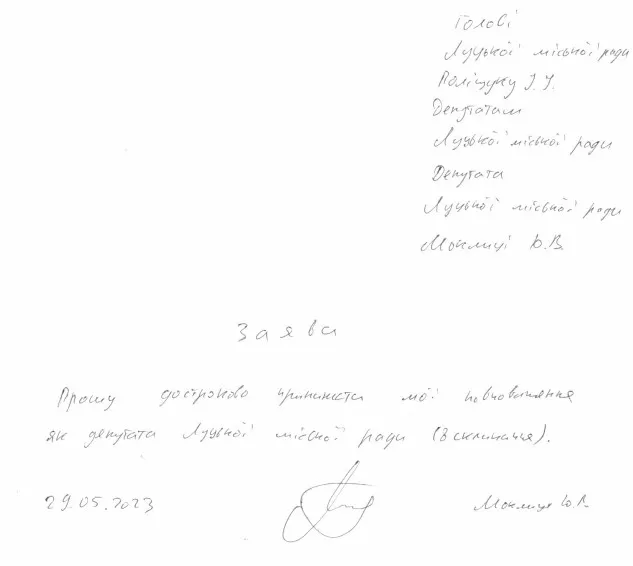 Голові
Луцької міської ради
Поліщуку І.І.
Депутатам
Луцької міської ради
Депутата
Луцької міської ради
Моклиці Ю.В.
Заява
Прошу достроково припинити мої повноваження
як депутата Луцької міської ради (8 скликання).
29.05.2023 Моклиця Ю.В.